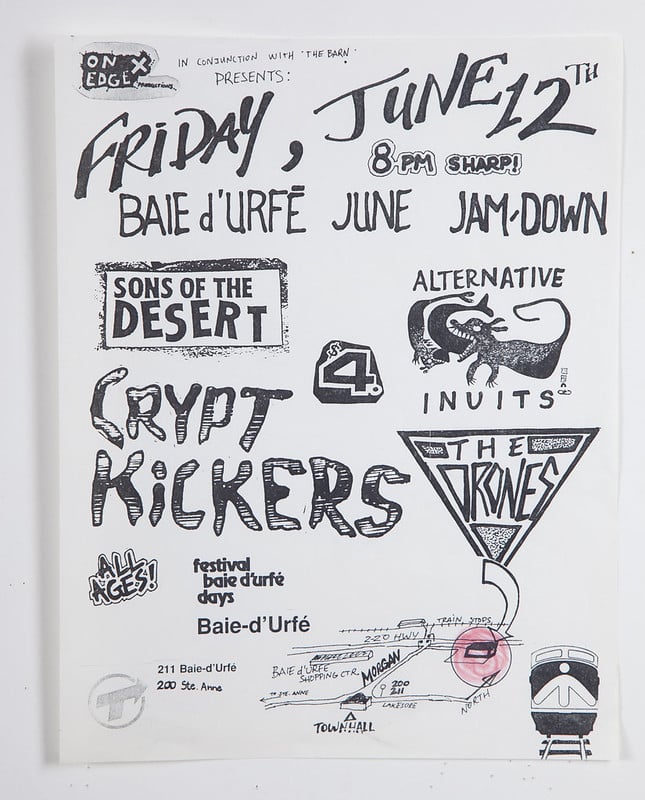 ON X
EDGE
PRODUCTIONS.
IN CONJUNCTION WITH "THE BARN"
PRESENTS:
FRIDAY, JUNE 12TH
8 PM SHARP!
BAIE d'URFÉ JUNE JAM-DOWN
SONS OF THE
DESERT
ALTERNATIVE
INUITS
$4.
CRYPT
KiCKERS
THE
DRONES
ALL
AGES!
festival
baie d'urfé
days
Baie-d'Urfé
211 Baie-d'Urfé
200 Ste. Anne
TRAIN STOPS
2-20 HWY
BAIE d'URFE
SHOPPING CTR.
MORGAN
TO STE. ANNE
200
211
LAKESORE
NORTH
TOWNHALL